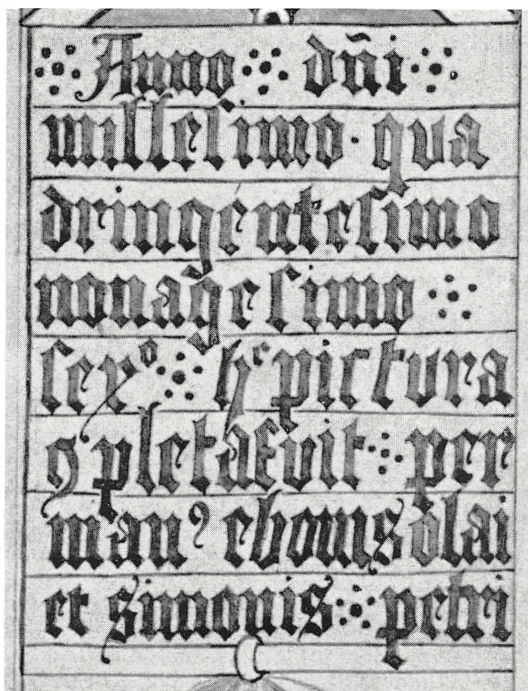 Anno dñi
milleſimo · qua
dringenteſimo
nonageſimo
ſexᵒ hᶜ pictura
ꝯpleta fuit per
manꝰ ebonis olai
et simonis petri